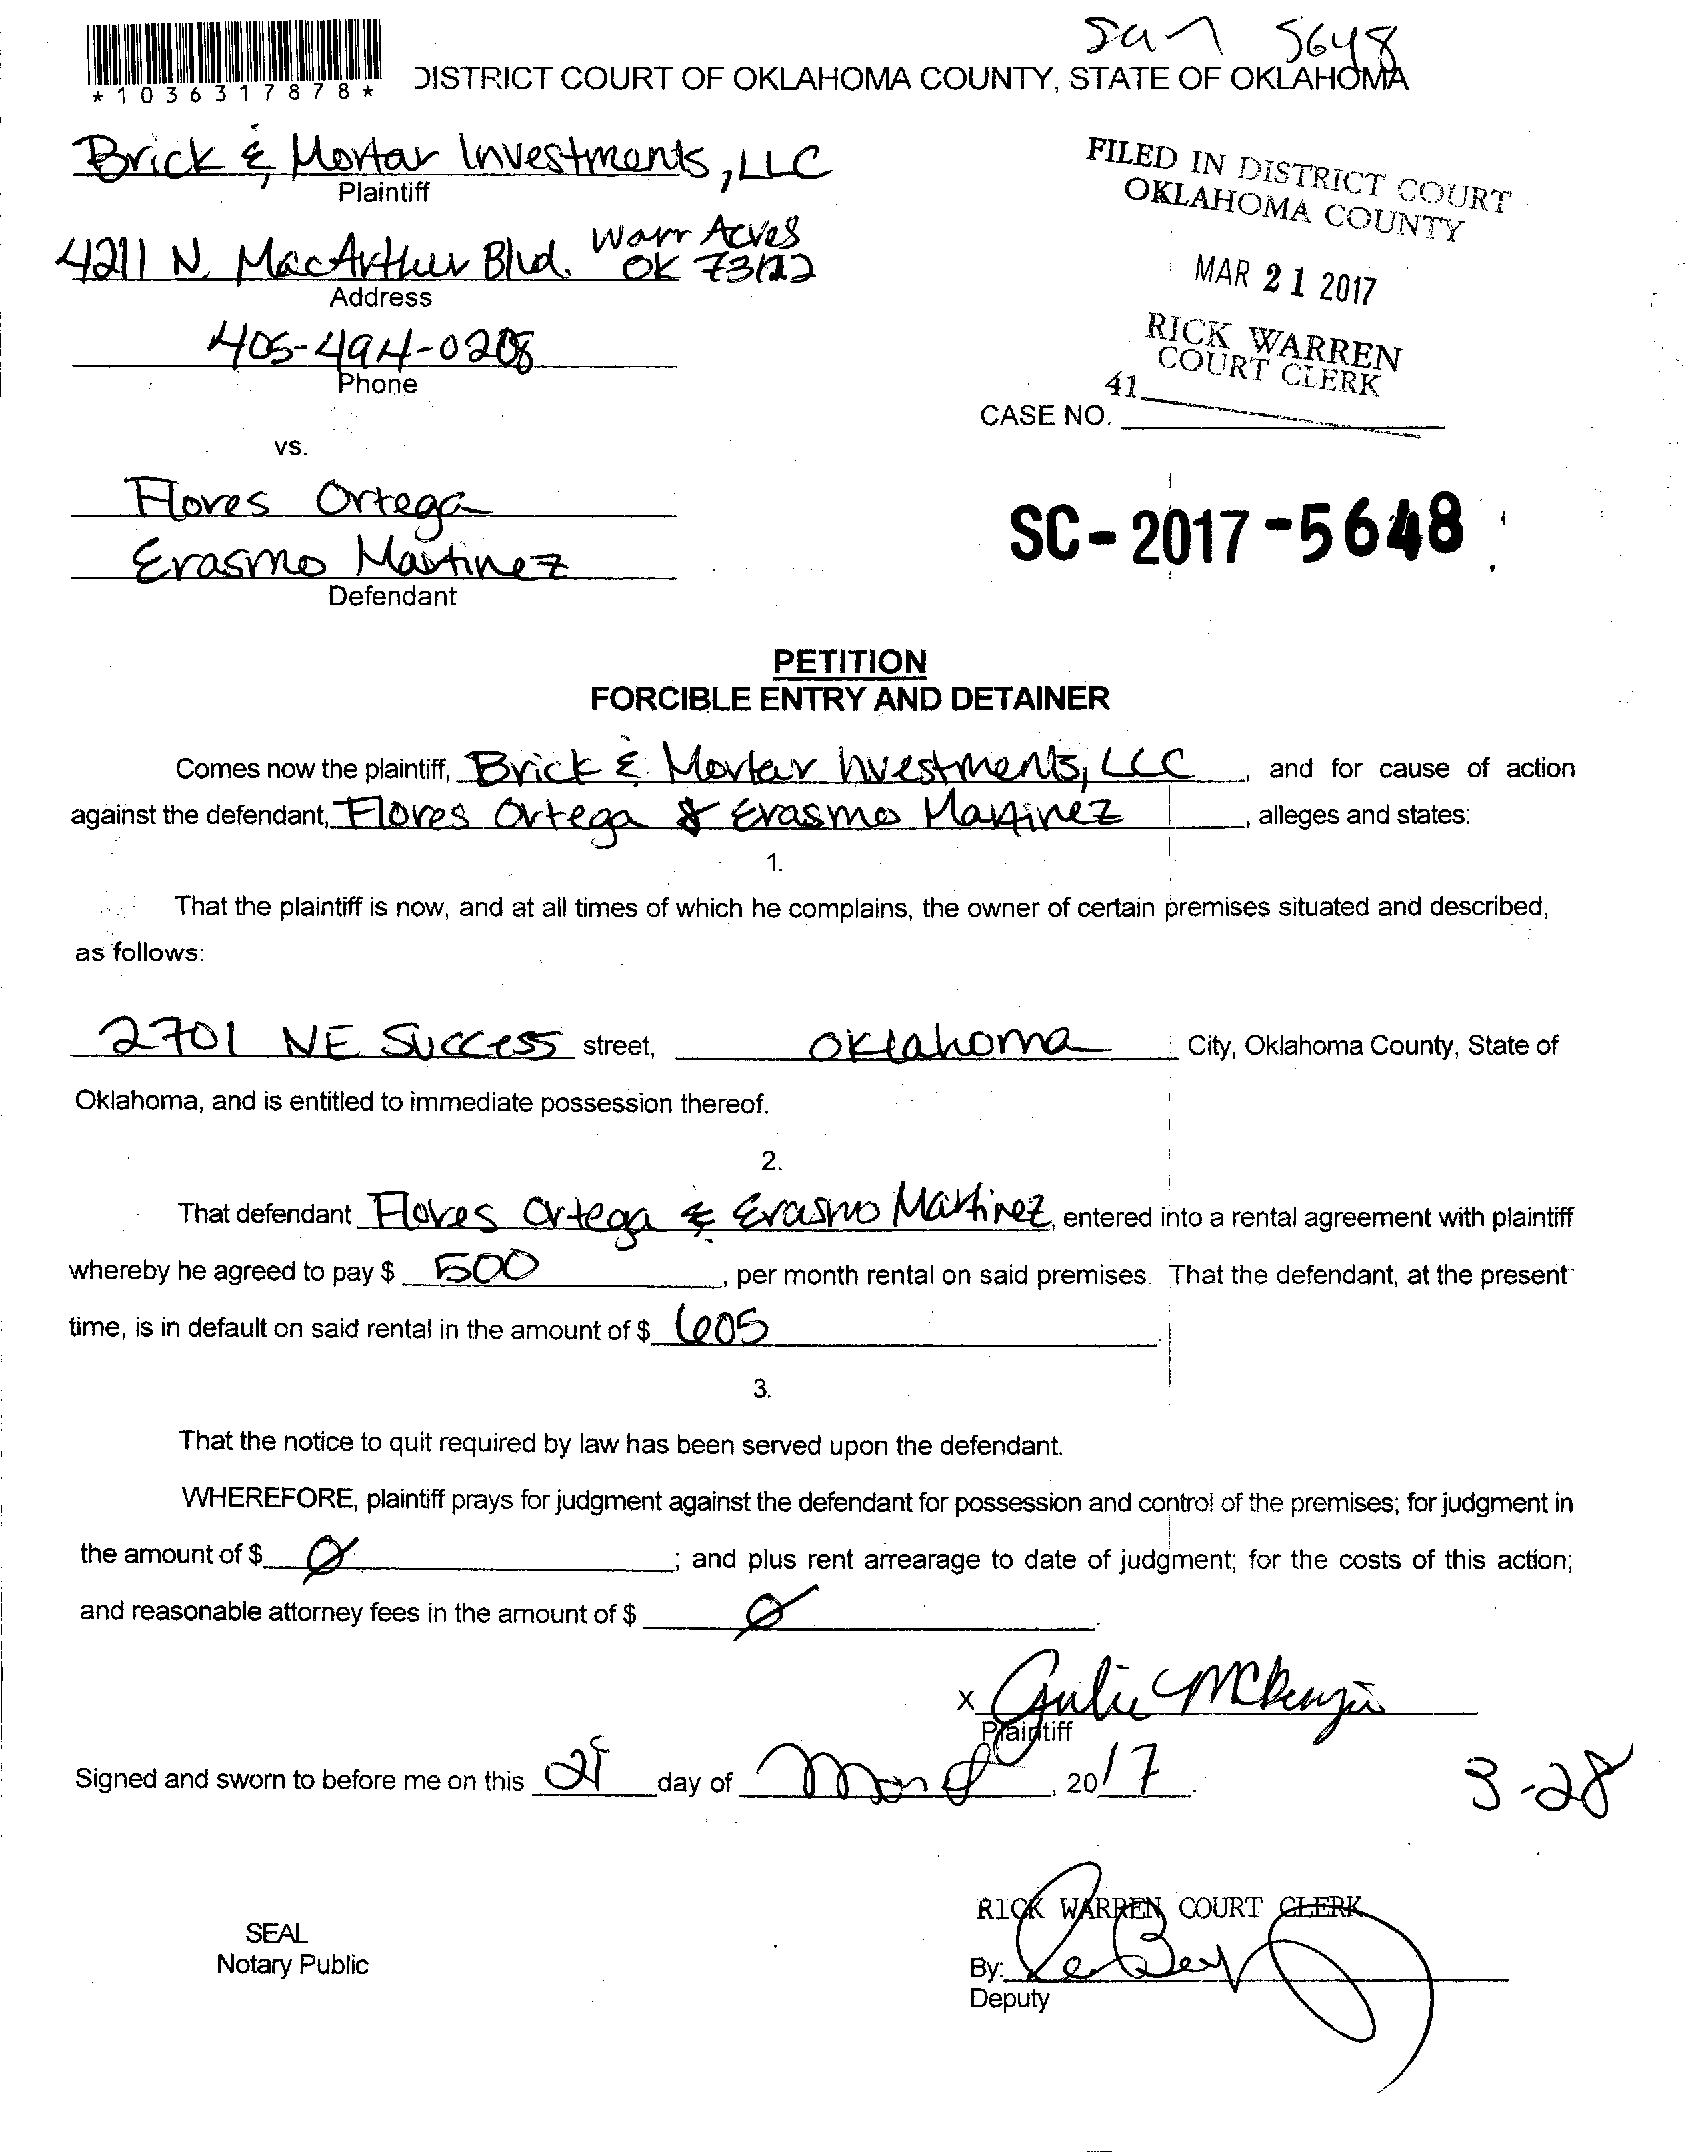 San 5648
*1036317878*
DISTRICT COURT OF OKLAHOMA COUNTY, STATE OF OKLAHOMA
Brick & Mortar Investments, LLC
Plaintiff
FILED IN DISTRICT COURT
OKLAHOMA COUNTY
4211 N. MacArthur Blvd. Warr Acres
OK 73122
Address
MAR 21 2017
405-494-0208
Phone
RICK WARREN
COURT CLERK
41
CASE NO.
vs.
Flores Ortega
Erasmo Martinez
Defendant
SC-2017-5648
PETITION
FORCIBLE ENTRY AND DETAINER
Comes now the plaintiff, Brick & Mortar Investments, LLC, and for cause of action
against the defendant, Flores Ortega & Erasmo Martinez, alleges and states:
1.
That the plaintiff is now, and at all times of which he complains, the owner of certain premises situated and described,
as follows:
2701 NE Success street, Oklahoma City, Oklahoma County, State of
Oklahoma, and is entitled to immediate possession thereof.
2.
That defendant Flores Ortega & Erasmo Martinez, entered into a rental agreement with plaintiff
whereby he agreed to pay $ 500, per month rental on said premises. That the defendant, at the present
time, is in default on said rental in the amount of $ 605.
3.
That the notice to quit required by law has been served upon the defendant.
WHEREFORE, plaintiff prays for judgment against the defendant for possession and control of the premises; for judgment in
the amount of $ Ø; and plus rent arrearage to date of judgment; for the costs of this action;
and reasonable attorney fees in the amount of $ Ø.
x Julie McKenzie
Plaintiff
Signed and sworn to before me on this 21 day of March, 2017.
3-28
RICK WARREN COURT CLERK
SEAL
Notary Public
By:
Deputy